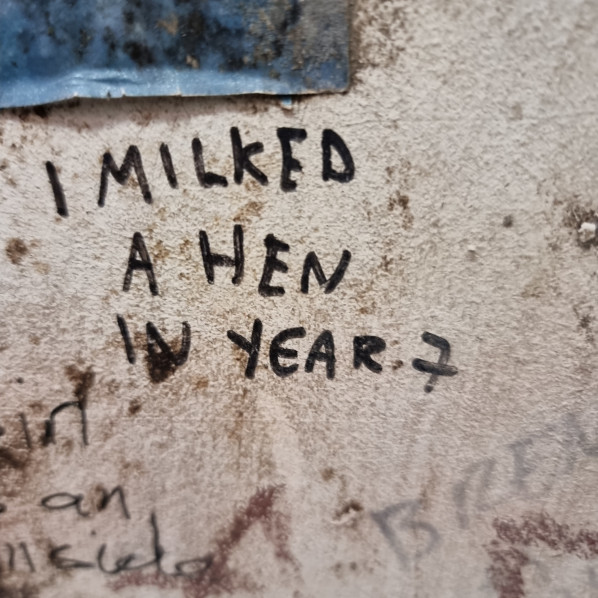 I MILKED
A HEN
IN YEAR 7
an